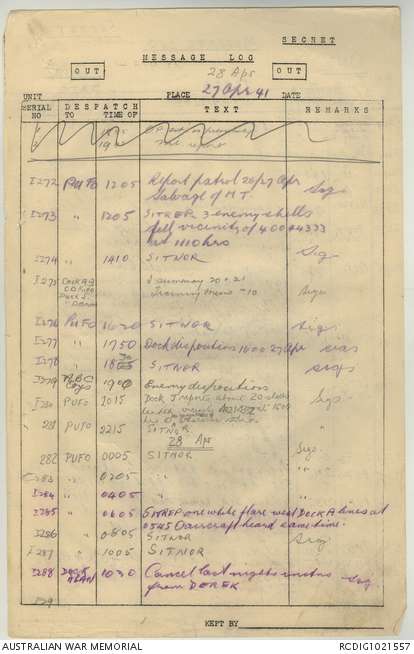 SECRET
MESSAGE LOG
OUT 28 Apr OUT
UNIT PLACE 27 Apr 41 DATE
SERIAL NO DESPATCH TO TIME OF TEXT REMARKS
I272 PUFO 1205 Report patrol 26/27 Apr Sig
Salvage of M.T.
I273 " 1205 SITREP 3 enemy shells
fell vicinity of 40044333 Sig
at 1110 hrs
I274 " 1410 SITNOR Sig
I275 Dock A J summary 20 & 21
Training Memo -10 Sigs
I276 PUFO 1620 SITNOR Sigs
I277 " 1750 Dock dispositions 1600 27 Apr
I278 " SITNOR sigs
I279 A.B.C Coys 1900 Enemy dispositions
I280 PUFO 2015 Dock J reports about 20 shells Sgs
281 PUFO 2215 SITNOR
28 Apr
282 PUFO 0005 SITNOR Sgs
I283 " 0205 " "
I284 " 0405 " "
I285 " 0605 SITREP one white flare west DOCK A lines at
0545 aircraft heard same time.
I286 " 0805 SITNOR Sig
I287 " 1005 SITNOR
I288 1030 Cancel last nights Sig
from DOREK
I29
KEPT BY
AUSTRALIAN WAR MEMORIAL RCDIG1021557